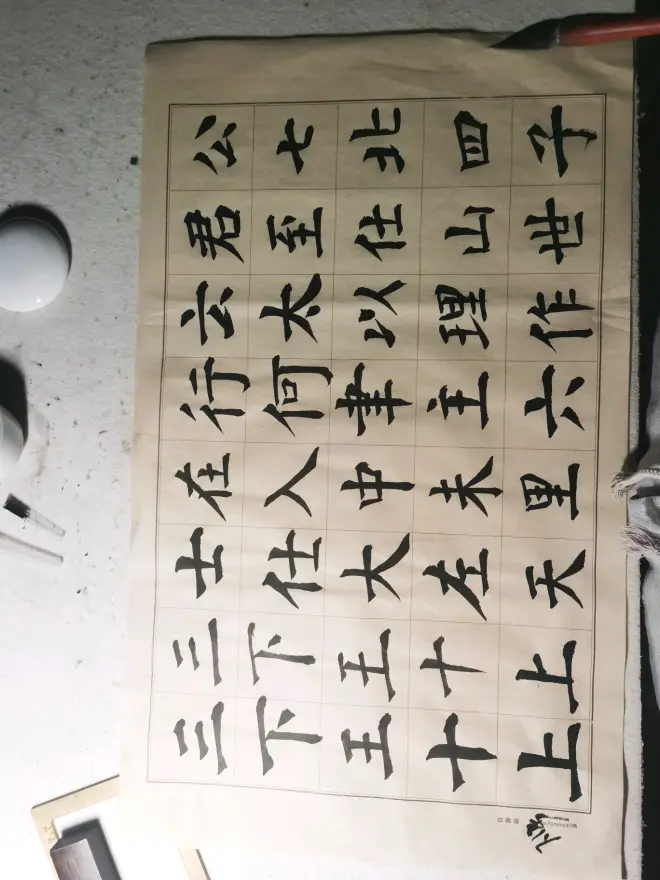 子世作六里天上上
四山理主未左十十
北仕以聿中大王王
七至太何人仕下下
公君云行在士三三